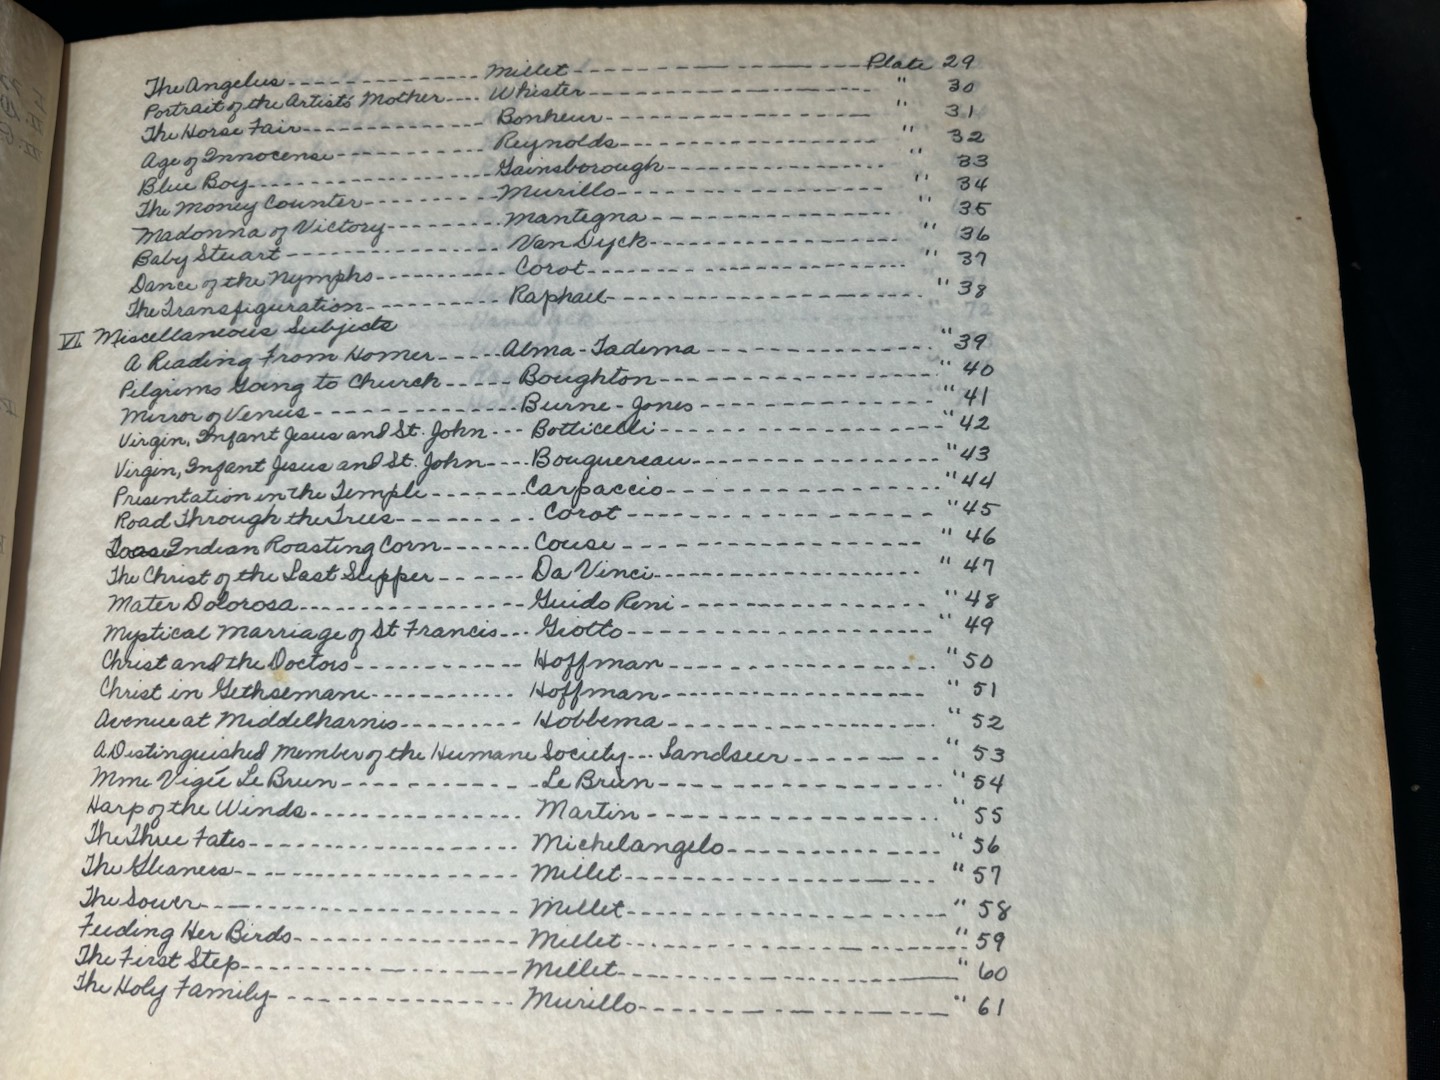 The Angelus --- Millet --- Plate 29
Portrait of the Artist's Mother --- Whister --- " 30
The Horse Fair --- Bonheur --- " 31
Age of Innocense --- Reynolds --- " 32
Blue Boy --- Gainsborough --- " 33
The Money Counter --- Murillo --- " 34
Madonna of Victory --- Mantegna --- " 35
Baby Stuart --- Van Dyck --- " 36
Dance of the Nymphs --- Corot --- " 37
The Transfiguration --- Raphael --- " 38
VI Miscellaneous Subjects
A Reading From Homer --- Alma-Tadema --- " 39
Pilgrims Going to Church --- Boughton --- " 40
Mirror of Venus --- Burne-Jones --- " 41
Virgin, Infant Jesus and St. John --- Botticelli --- " 42
Virgin, Infant Jesus and St. John --- Bouguereau --- " 43
Presentation in the Temple --- Carpaccio --- " 44
Road Through the Trees --- Corot --- " 45
Indian Roasting Corn --- Couse --- " 46
The Christ of the Last Supper --- Da Vinci --- " 47
Mater Dolorosa --- Guido Reni --- " 48
Mystical Marriage of St Francis --- Giotto --- " 49
Christ and the Doctors --- Hoffman --- " 50
Christ in Gethsemane --- Hoffman --- " 51
Avenue at Middelharnis --- Hobbema --- " 52
A Distinguished Member of the Humane Society --- Landseer --- " 53
Mme Vigée Le Brun --- Le Brun --- " 54
Harp of the Winds --- Martin --- " 55
The Three Fates --- Michelangelo --- " 56
The Gleaners --- Millet --- " 57
The Sower --- Millet --- " 58
Feeding Her Birds --- Millet --- " 59
The First Step --- Millet --- " 60
The Holy Family --- Murillo --- " 61